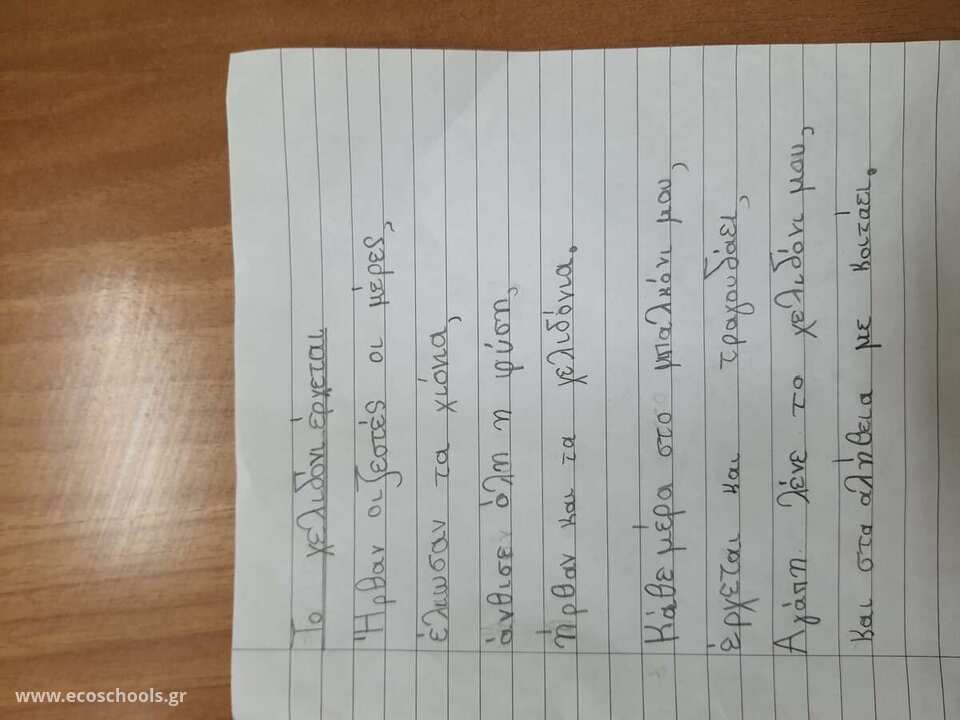 Το χελιδόνι έρχεται
Ήρθαν οι ζεστές οι μέρες,
έλιωσαν τα χιόνια,
άνθισεν όλη η φύση,
ήρθαν και τα χελιδόνια.
Κάθε μέρα στο μπαλκόνι μου,
έρχεται και τραγουδάει,
Αγάπη λένε το χελιδόνι μου,
και στα αλήθεια με κοιτάει.
www.ecoschools.gr